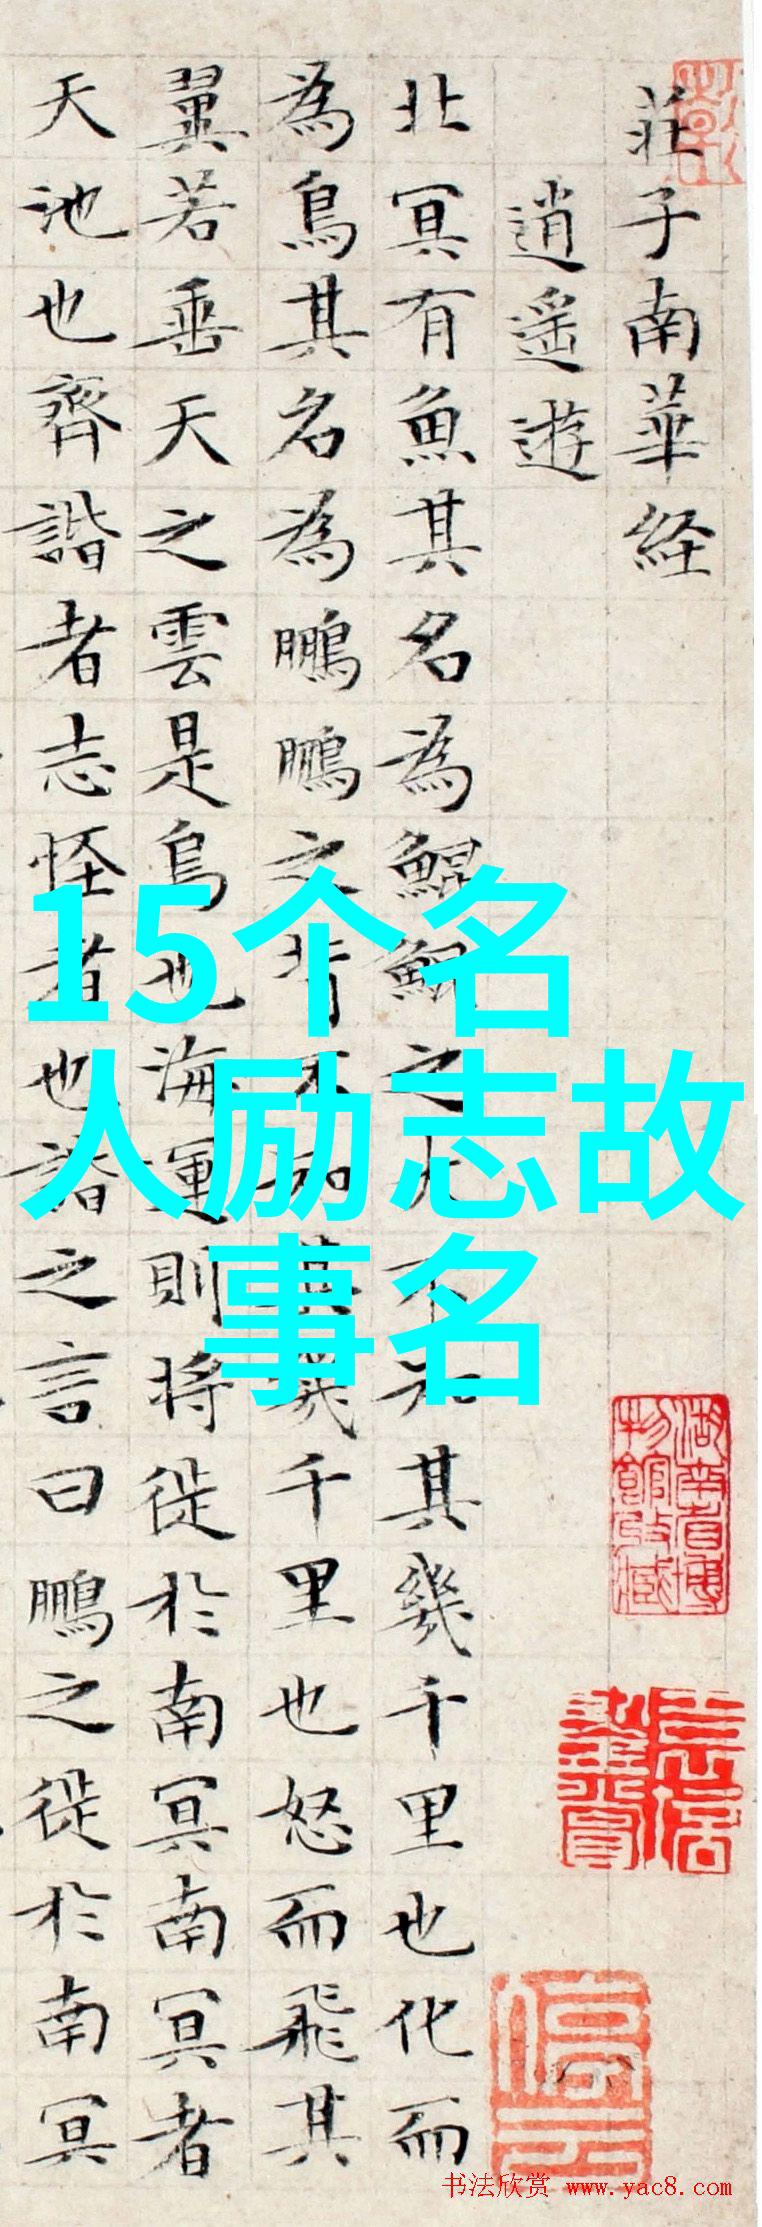 莊子南華経
逍遥遊
北冥有魚其名為鯤鯤之大不知其幾千里也化而
為鳥其名為鵬鵬之背不知其幾千里也怒而飛其
翼若垂天之雲是鳥也海運則將徙於南冥南冥者
天池也齊諧者志怪者也諧之言曰鵬之徙於南冥
15个名
人励志故
事名
湖南省博
物館收藏
停云
书法欣赏 www.yac8.com